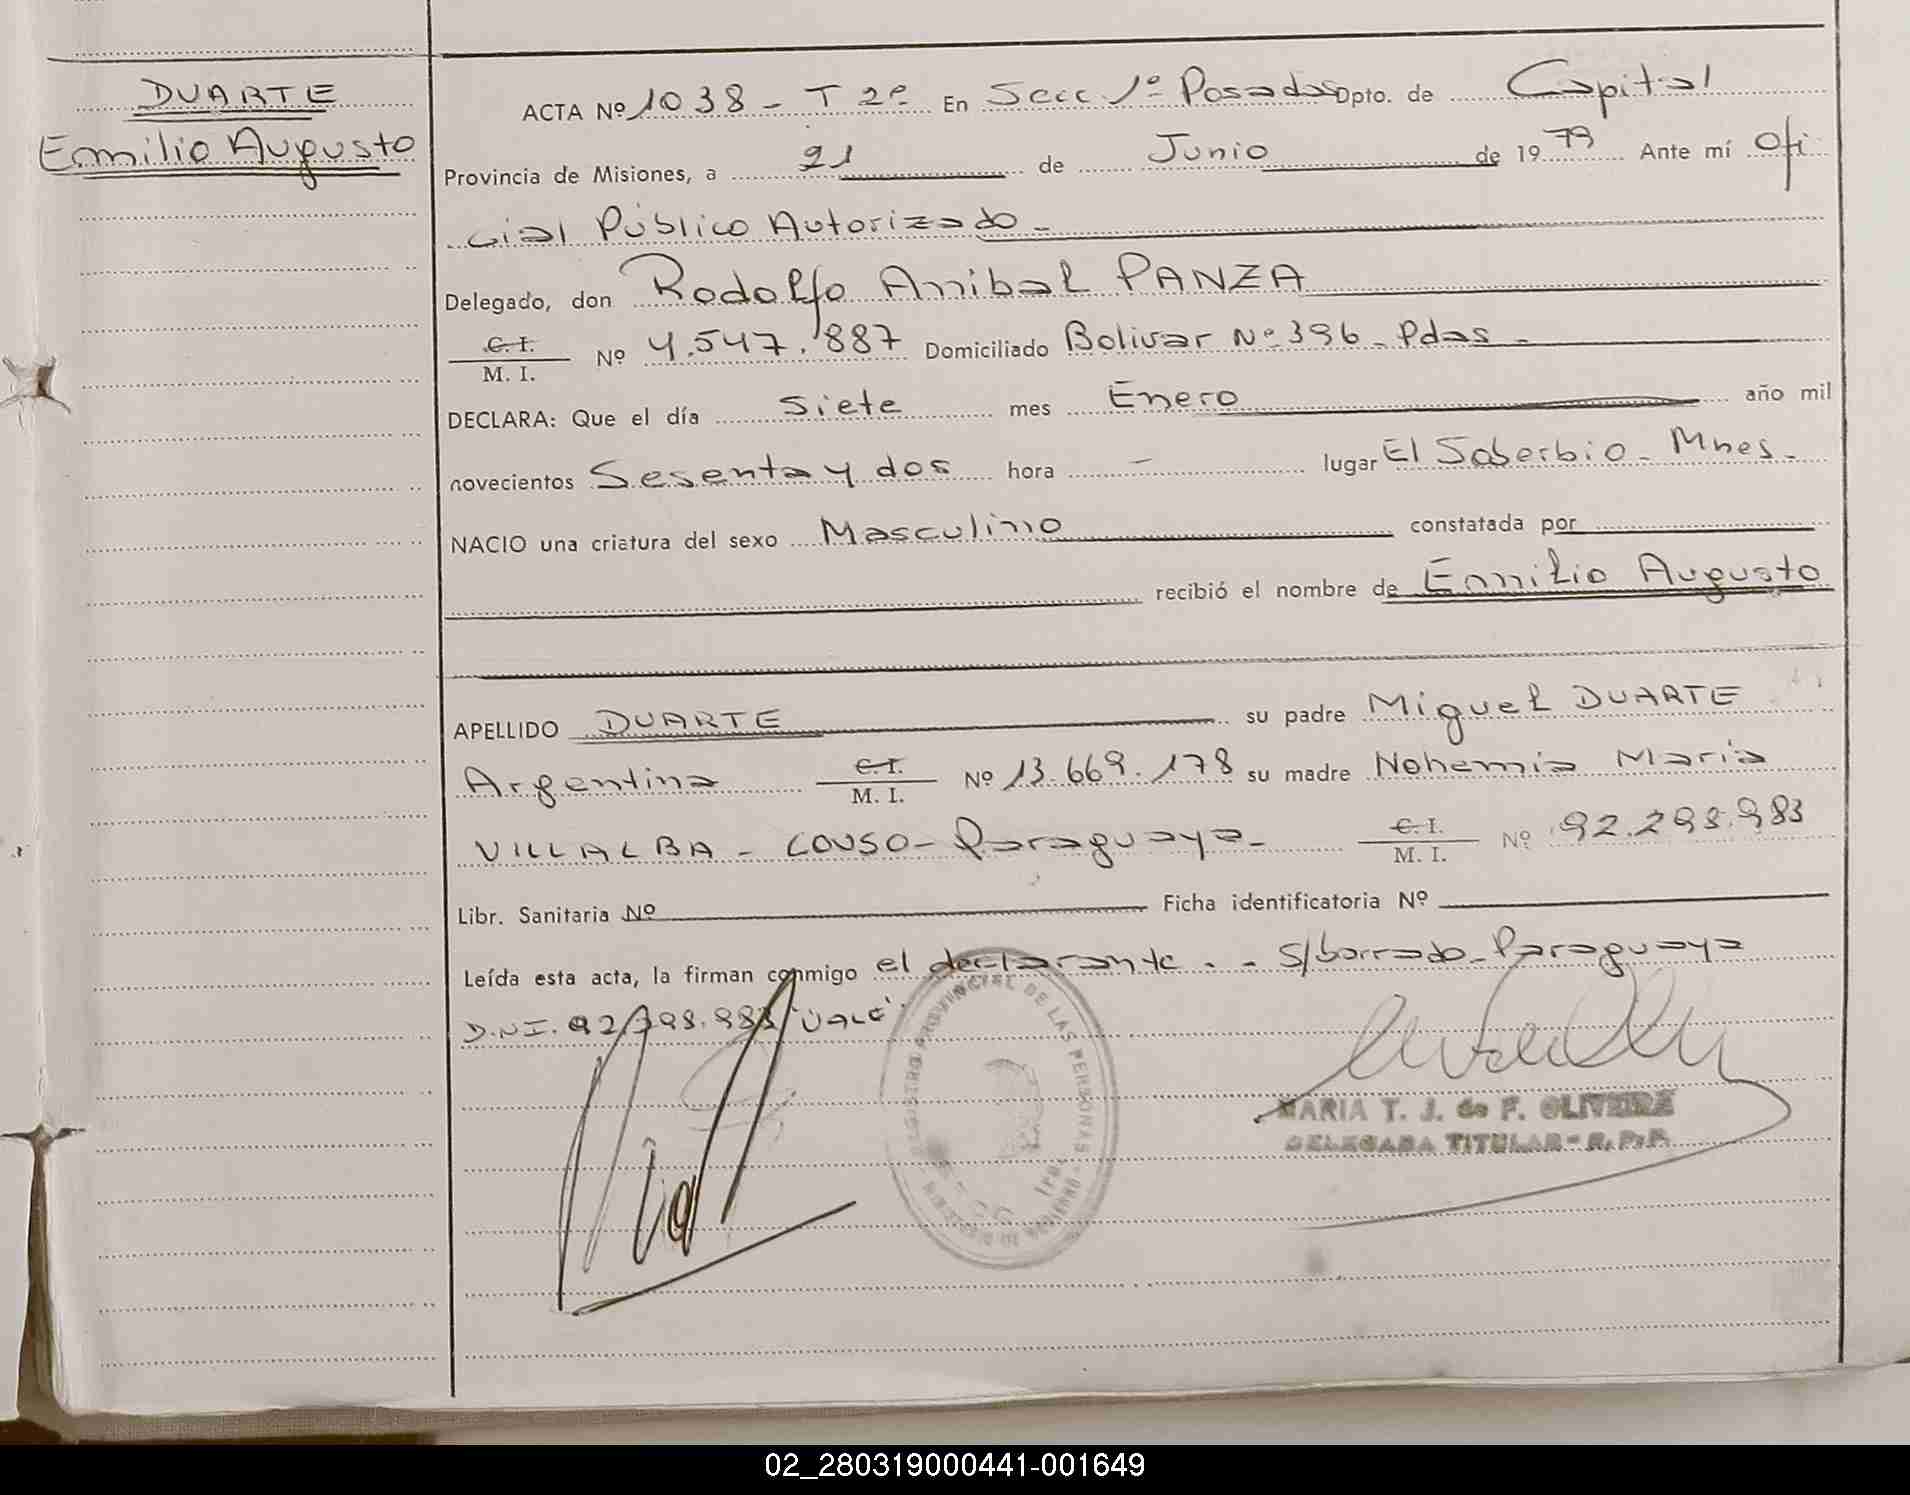 DUARTE
Emilio Augusto
ACTA Nº 1038 - T 2º En Secc 1º Posadas Dpto. de Capital
Provincia de Misiones, a 21 de Junio de 1979 Ante mí Ofi
cial Público Autorizado -
Delegado, don Rodolfo Anibal PANZA
C. I.
M. I. Nº 4.547.887 Domiciliado Bolivar Nº 396 - Pdas -
DECLARA: Que el día Siete mes Enero año mil
novecientos Sesenta y dos hora - lugar El Soberbio - Mnes -
NACIO una criatura del sexo Masculino constatada por
recibió el nombre de Emilio Augusto
APELLIDO DUARTE su padre Miguel DUARTE
Argentina C. I. M. I. Nº 13.669.178 su madre Nohemia Maria
VILLALBA - COUSO - Paraguaya - C. I. M. I. Nº 92.298.983
Libr. Sanitaria Nº Ficha identificatoria Nº
Leída esta acta, la firman conmigo el declarante . - S/borrado - Paraguaya
D.N.I. 92.298.983 "VALE".
REGISTRO PROVINCIAL DE LAS PERSONAS
MINISTERIO DE GOBIERNO
MARIA T. J. de F. OLIVEIRA
DELEGADA TITULAR - R. P. P.
02_280319000441-001649